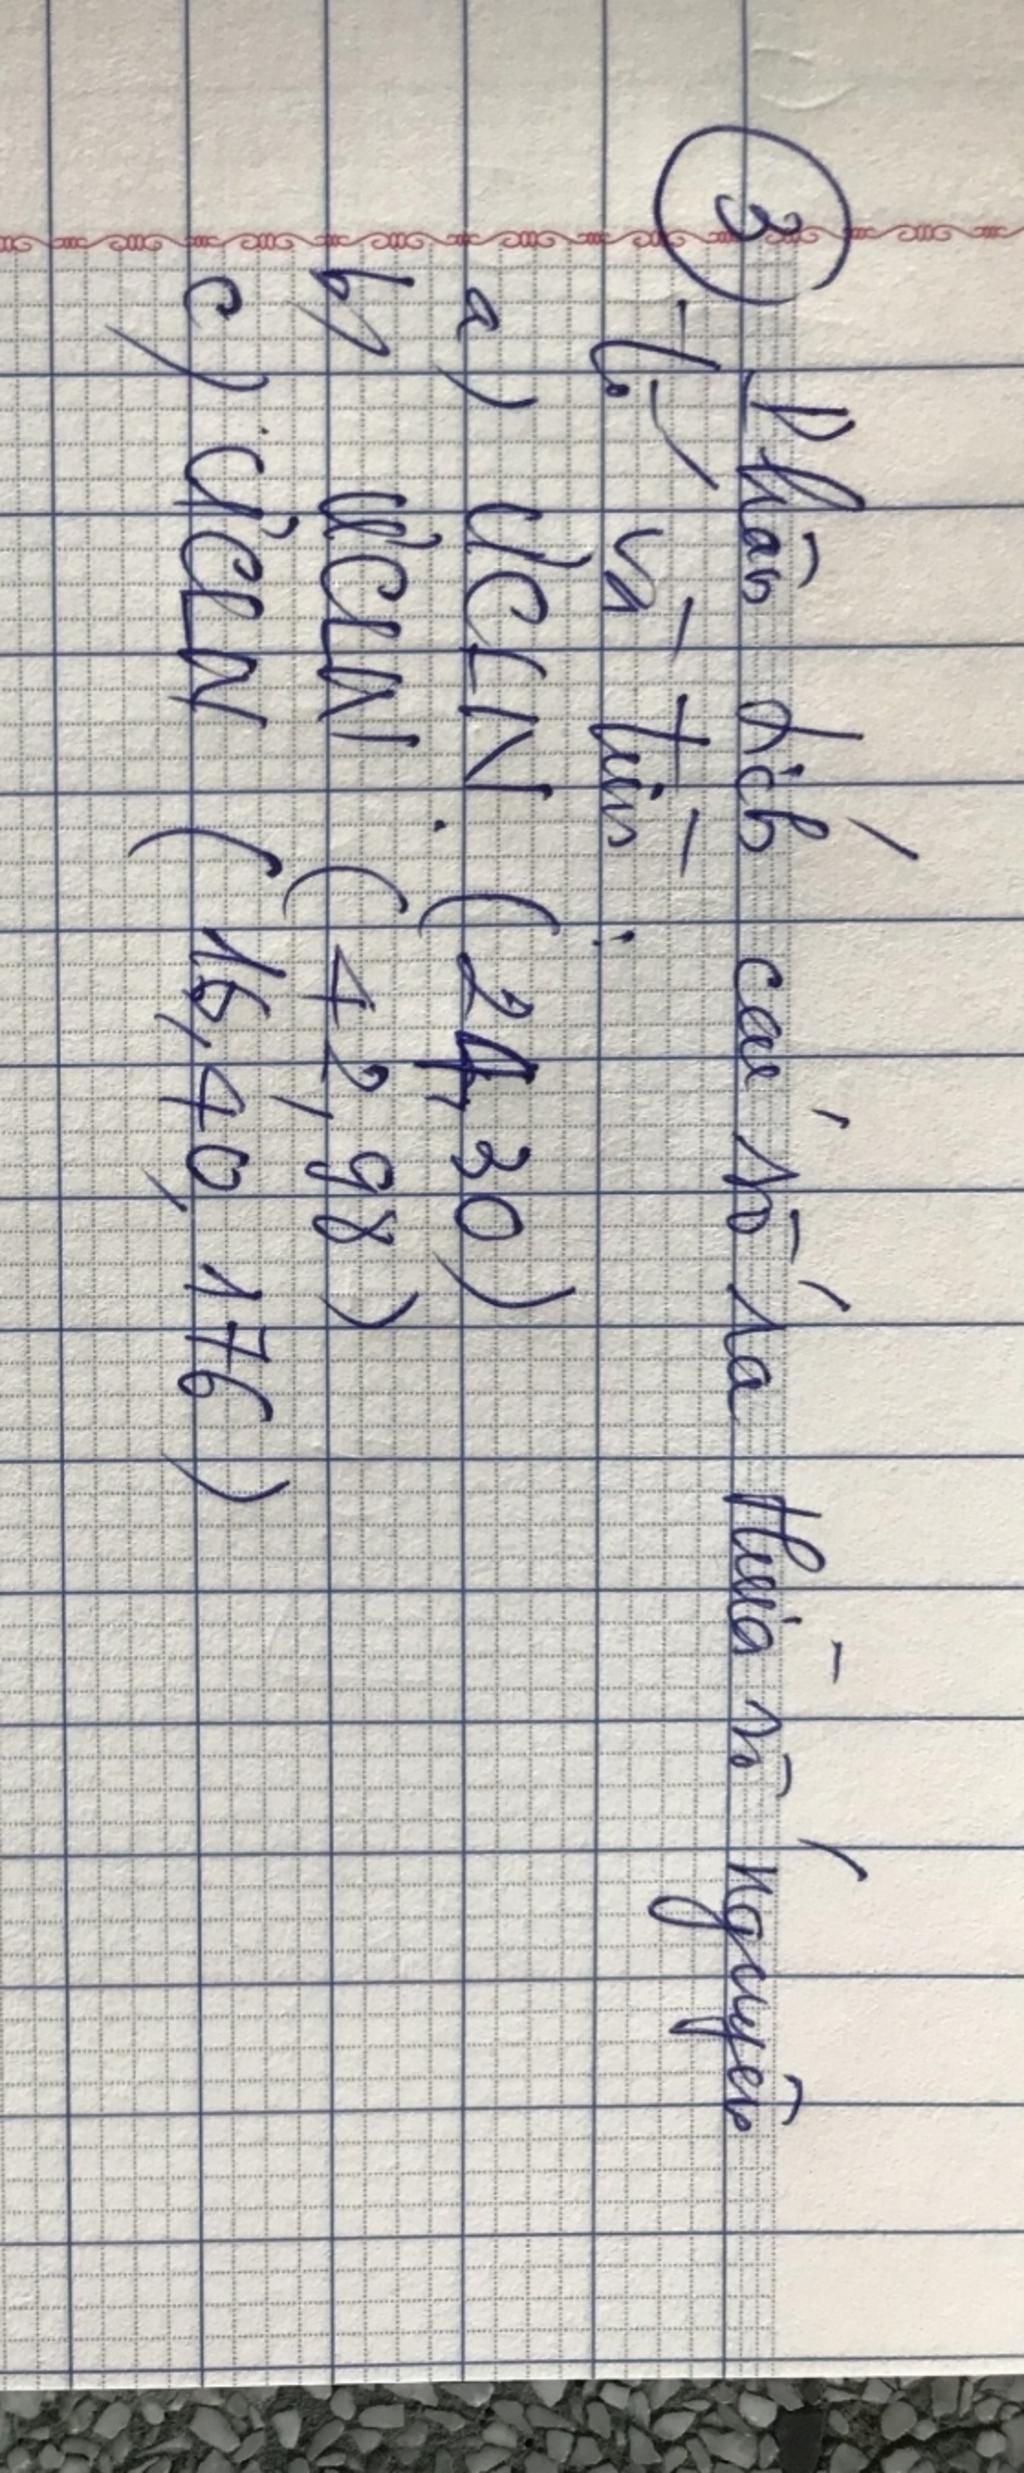 3 Phân tích các số ra thừa số nguyên
tố và tìm :
a) ƯCLN (24, 30)
b) ƯCLN (42, 98)
c) ƯCLN (16, 40, 176)